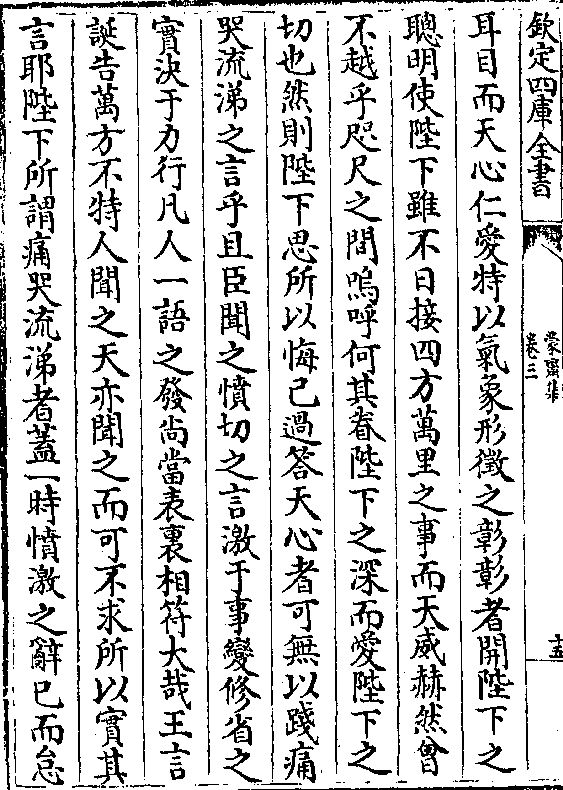 欽定四庫全書
蒙齋集
卷三
十五
耳目而天心仁愛特以氣象形徵之彰彰者開陛下之
聰明使陛下雖不日接四方萬里之事而天威赫然曾
不越乎咫尺之間嗚呼何其眷陛下之深而愛陛下之
切也然則陛下思所以悔已過答天心者可無以踐痛
哭流涕之言乎且臣聞之憤切之言激于事變修省之
實決于力行凡人一語之發尚當表裏相符大哉王言
誕告萬方不特人聞之天亦聞之而可不求所以實其
言耶陛下所謂痛哭流涕者蓋一時憤激之辭已而怠